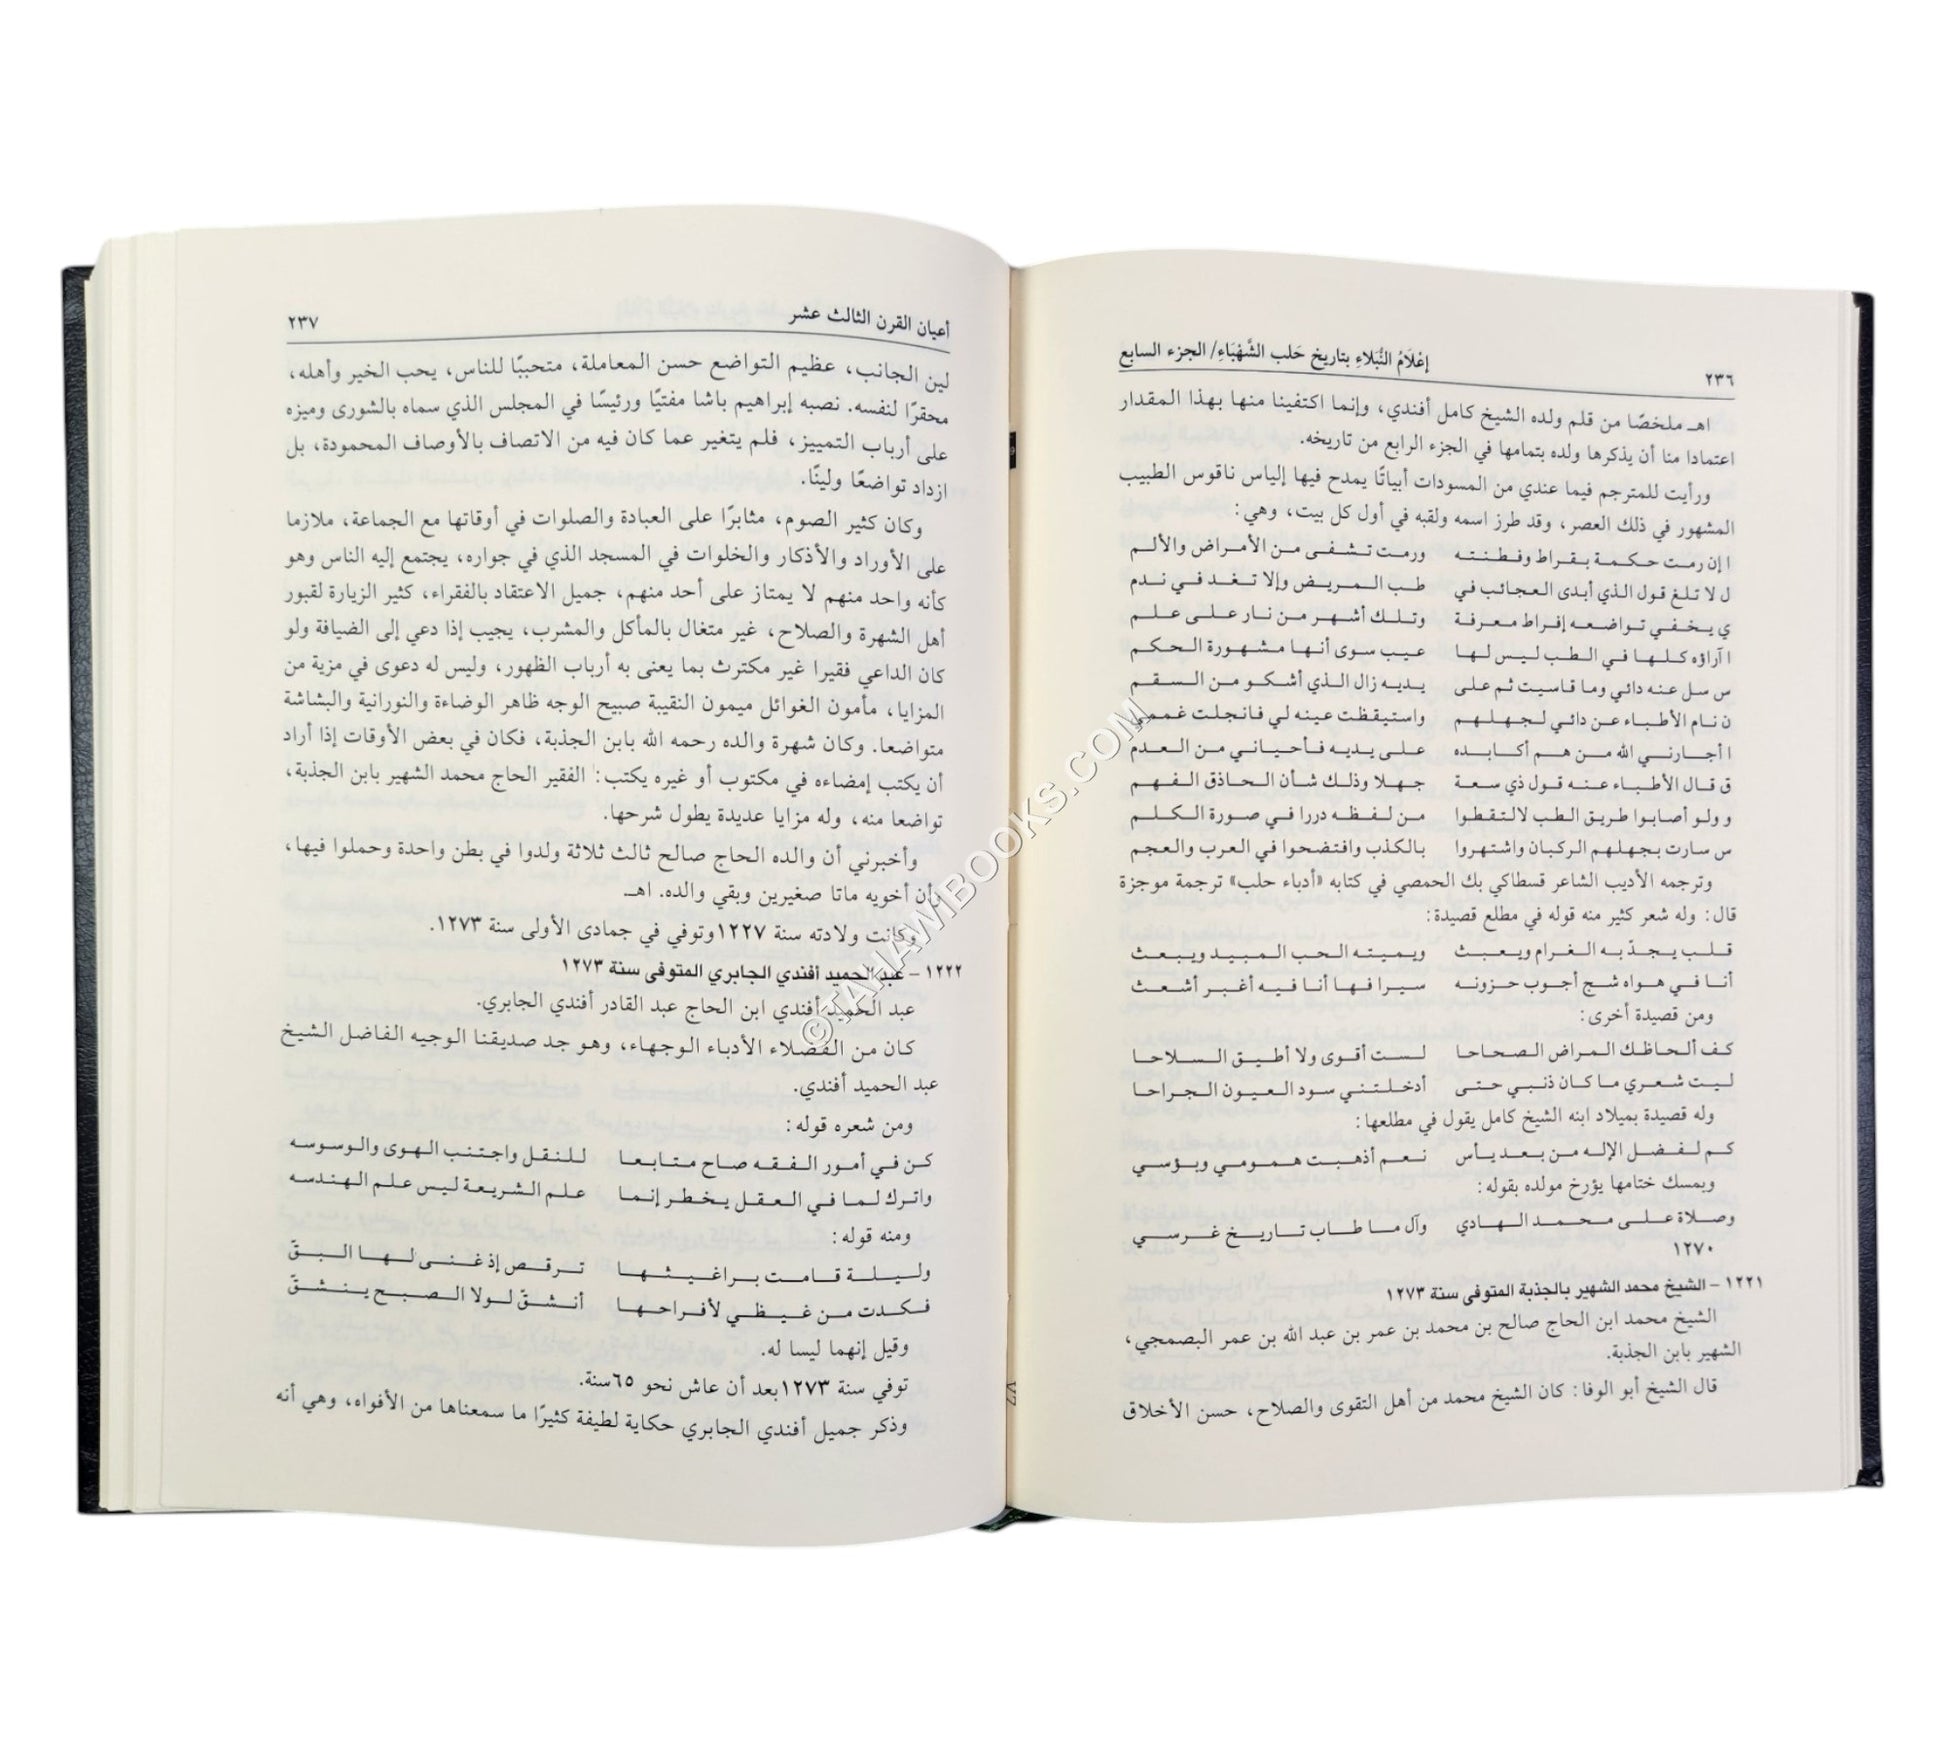 ٢٣٦
إعْلَامُ النُّبَلاءِ بتاريخ حَلب الشَّهْبَاءِ/ الجزء السابع
اهـ ملخصًا من قلم ولده الشيخ كامل أفندي، وإنما اكتفينا منها بهذا المقدار
اعتمادا منا أن يذكرها ولده بتمامها في الجزء الرابع من تاريخه.
ورأيت للمترجم فيما عندي من المسودات أبياتًا يمدح فيها إلياس ناقوس الطبيب
المشهور في ذلك العصر، وقد طرز اسمه ولقبه في أول كل بيت، وهي:
ا إن رمت حكمة بقراط وفطنته ورمت تشفى من الأمراض والألم
ل لا تلغ قول الذي أبدى العجائب في طب المريض وإلا تغد في ندم
ي يخفي تواضعه إفراط معرفة وتلك أشهر من نار على علم
ا آراؤه كلها في الطب ليس لها عيب سوى أنها مشهورة الحكم
س سل عنه دائي وما قاسيت ثم على يديه زال الذي أشكو من السقم
ن نام الأطباء عن دائي لجهلهم واستيقظت عينه لي فانجلت غممي
ا أجارني الله من هم أكابده على يديه فأحياني من العدم
ق قال الأطباء عنه قول ذي سعة جهلا وذلك شأن الحاذق الفهم
و ولو أصابوا طريق الطب لالتقطوا من لفظه دررا في صورة الكلم
س سارت بجهلهم الركبان واشتهروا بالكذب وافتضحوا في العرب والعجم
وترجمه الأديب الشاعر قسطاكي بك الحمصي في كتابه «أدباء حلب» ترجمة موجزة
قال: وله شعر كثير منه قوله في مطلع قصيدة:
قلب يجدّ به الغرام ويعبث ويميته الحب المبيد ويبعث
أنا في هواه شج أجوب حزونه سيرا فها أنا فيه أغبر أشعث
ومن قصيدة أخرى:
كف ألحاظك المراض الصحاحا لست أقوى ولا أطيق السلاحا
ليت شعري ما كان ذنبي حتى أدخلتني سود العيون الجراحا
وله قصيدة بميلاد ابنه الشيخ كامل يقول في مطلعها:
كم لفضل الإله من بعد يأس نعم أذهبت همومي وبؤسي
وبمسك ختامها يؤرخ مولده بقوله:
وصلاة على محمد الهادي وآل ما طاب تاريخ غرسي
١٢٧٠
١٢٢١ - الشيخ محمد الشهير بالجذبة المتوفى سنة ١٢٧٣
الشيخ محمد ابن الحاج صالح بن محمد بن عمر بن عبد الله بن عمر البصمجي،
الشهير بابن الجذبة.
قال الشيخ أبو الوفا: كان الشيخ محمد من أهل التقوى والصلاح، حسن الأخلاق
أعيان القرن الثالث عشر
٢٣٧
لين الجانب، عظيم التواضع حسن المعاملة، متحببًا للناس، يحب الخير وأهله،
محقرًا لنفسه. نصبه إبراهيم باشا مفتيًا ورئيسًا في المجلس الذي سماه بالشورى وميزه
على أرباب التمييز، فلم يتغير عما كان فيه من الاتصاف بالأوصاف المحمودة، بل
ازداد تواضعًا ولينًا.
وكان كثير الصوم، مثابرًا على العبادة والصلوات في أوقاتها مع الجماعة، ملازما
على الأوراد والأذكار والخلوات في المسجد الذي في جواره، يجتمع إليه الناس وهو
كأنه واحد منهم لا يمتاز على أحد منهم، جميل الاعتقاد بالفقراء، كثير الزيارة لقبور
أهل الشهرة والصلاح، غير متغال بالمأكل والمشرب، يجيب إذا دعي إلى الضيافة ولو
كان الداعي فقيرا غير مكترث بما يعنى به أرباب الظهور، وليس له دعوى في مزية من
المزايا، مأمون الغوائل ميمون النقيبة صبيح الوجه ظاهر الوضاءة والنورانية والبشاشة
متواضعا. وكان شهرة والده رحمه الله بابن الجذبة، فكان في بعض الأوقات إذا أراد
أن يكتب إمضاءه في مكتوب أو غيره يكتب: الفقير الحاج محمد الشهير بابن الجذبة،
تواضعا منه، وله مزايا عديدة يطول شرحها.
وأخبرني أن والده الحاج صالح ثالث ثلاثة ولدوا في بطن واحدة وحملوا فيها،
وأن أخويه ماتا صغيرين وبقي والده. اهـ
وكانت ولادته سنة ١٢٢٧ وتوفي في جمادى الأولى سنة ١٢٧٣.
١٢٢٢ - عبد الحميد أفندي الجابري المتوفى سنة ١٢٧٣
عبد الحميد أفندي ابن الحاج عبد القادر أفندي الجابري.
كان من الفضلاء الأدباء الوجهاء، وهو جد صديقنا الوجيه الفاضل الشيخ
عبد الحميد أفندي.
ومن شعره قوله:
كن في أمور الفقه صاح متابعا للنقل واجتنب الهوى والوسوسه
واترك لما في العقل يخطر إنما علم الشريعة ليس علم الهندسه
ومنه قوله:
وليلة قامت براغيثها ترقص إذ غنى لها البقّ
فكدت من غيظي لأفراحها أنشقّ لولا الصبح ينشقّ
وقيل إنهما ليسا له.
توفي سنة ١٢٧٣ بعد أن عاش نحو ٦٥ سنة.
وذكر جميل أفندي الجابري حكاية لطيفة كثيرًا ما سمعناها من الأفواه، وهي أنه
©TAHAWIBOOKS.COM